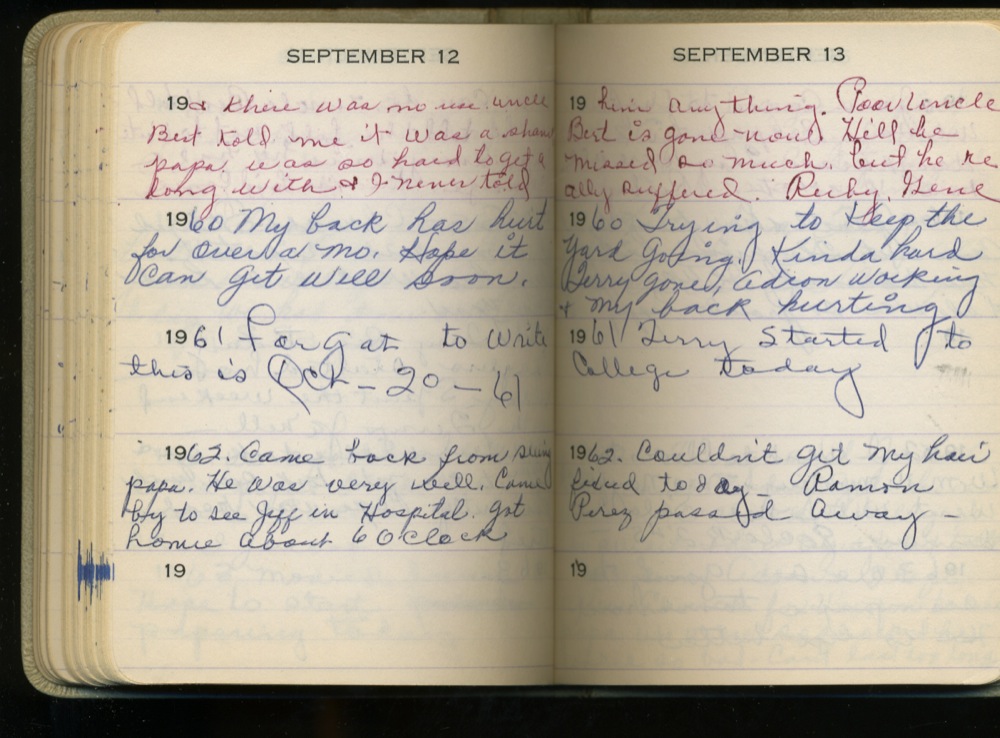 SEPTEMBER 12
19 & there was no use uncle
Bert told me it was a sham
papa was so hard to get a
long with & I never told
1960 My back has hurt
for over a mo. Hope it
can get well soon.
1961 Forgot to write
this is Oct - 20 - 61
1962. Came back from seeing
papa. He was very well. Came
by to see Jeff in Hospital. got
home about 6 O'clock
19
SEPTEMBER 13
19 him anything. Poor Uncle
Bert is gone now Hell be
missed so much. but he re
ally suffered. Ruby, Gene
1960 Trying to keep the
yard going. Kinda hard
Terry gone, Adron working
& my back hurting
1961 Terry Started to
College today
1962. Couldn't get my hair
fixed today - Ramon
Perez passed away -
19